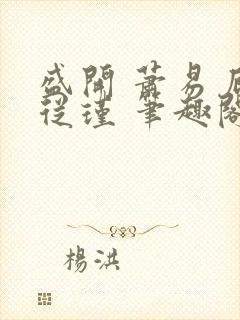 盛開 蕭易居
從瑾 筆趣閣
楊洪